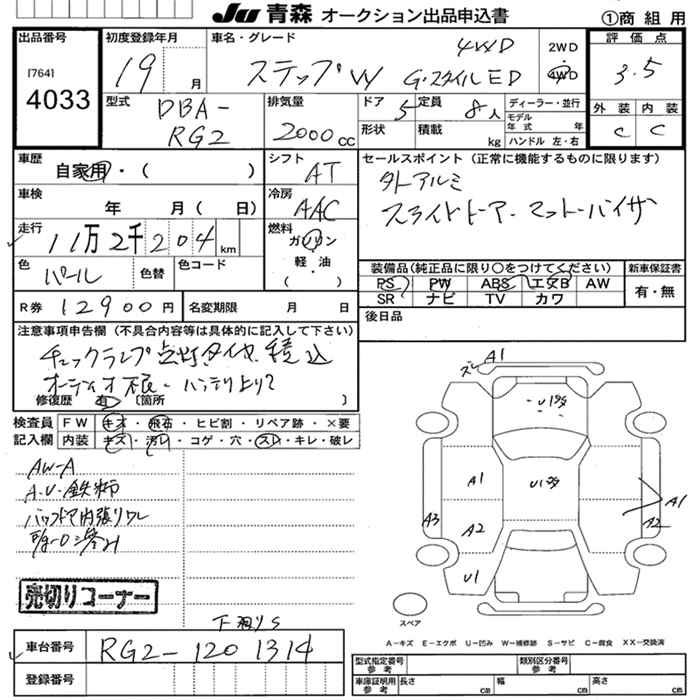 JU 青森 オークション出品申込書 ①商組用
出品番号 [764] 4033
初度登録年月 19 月
車名・グレード ステップW G・スタイルED 4WD
2WD 4WD
評価点 3.5
外装 内装
C C
型式 DBA-RG2
排気量 2000cc
ドア 5 定員 8人
形状 積載 kg
ディーラー・並行
モデル年式 年
ハンドル 左・右
車歴 自家用・( )
シフト AT
セールスポイント(正常に機能するものに限ります)
外アルミ
スライドドアー、マットーバイザ
車検 年 月( 日)
冷房 AAC
走行 11万2千204km
燃料 ガソリン 軽・油 ( )
色 パール 色替 色コード
装備品(純正品に限り○をつけてください) 新車保証書
PS PW ABS エアB AW 有・無
SR ナビ TV カワ
R券 12900円 名変期限 月 日
後日品
注意事項申告欄(不具合内容等は具体的に記入して下さい)
チェックランプ点灯 タイヤ積込
オーディオ不良
修復歴 有 〔箇所 〕
検査員記入欄 FW キズ・飛石・ヒビ割・リペア跡・×要
内装 キズ・汚レ・コゲ・穴・スレ・キレ・破レ
AW-A
A・U・鉄柿
バックドア内張りワレ
ズレ A1
U
A1
U
A1
A3
A2
A2
U1
スペア
売切りコーナー
A−キズ E−エクボ U−凹み W−補修跡 S−サビ C−腐食 XX−交換済
下廻りS
車台番号 RG2-1201314
登録番号
型式指定番号 参考 類別区分番号 参考
車庫証明用 参考 長さ cm 幅 cm 高さ cm